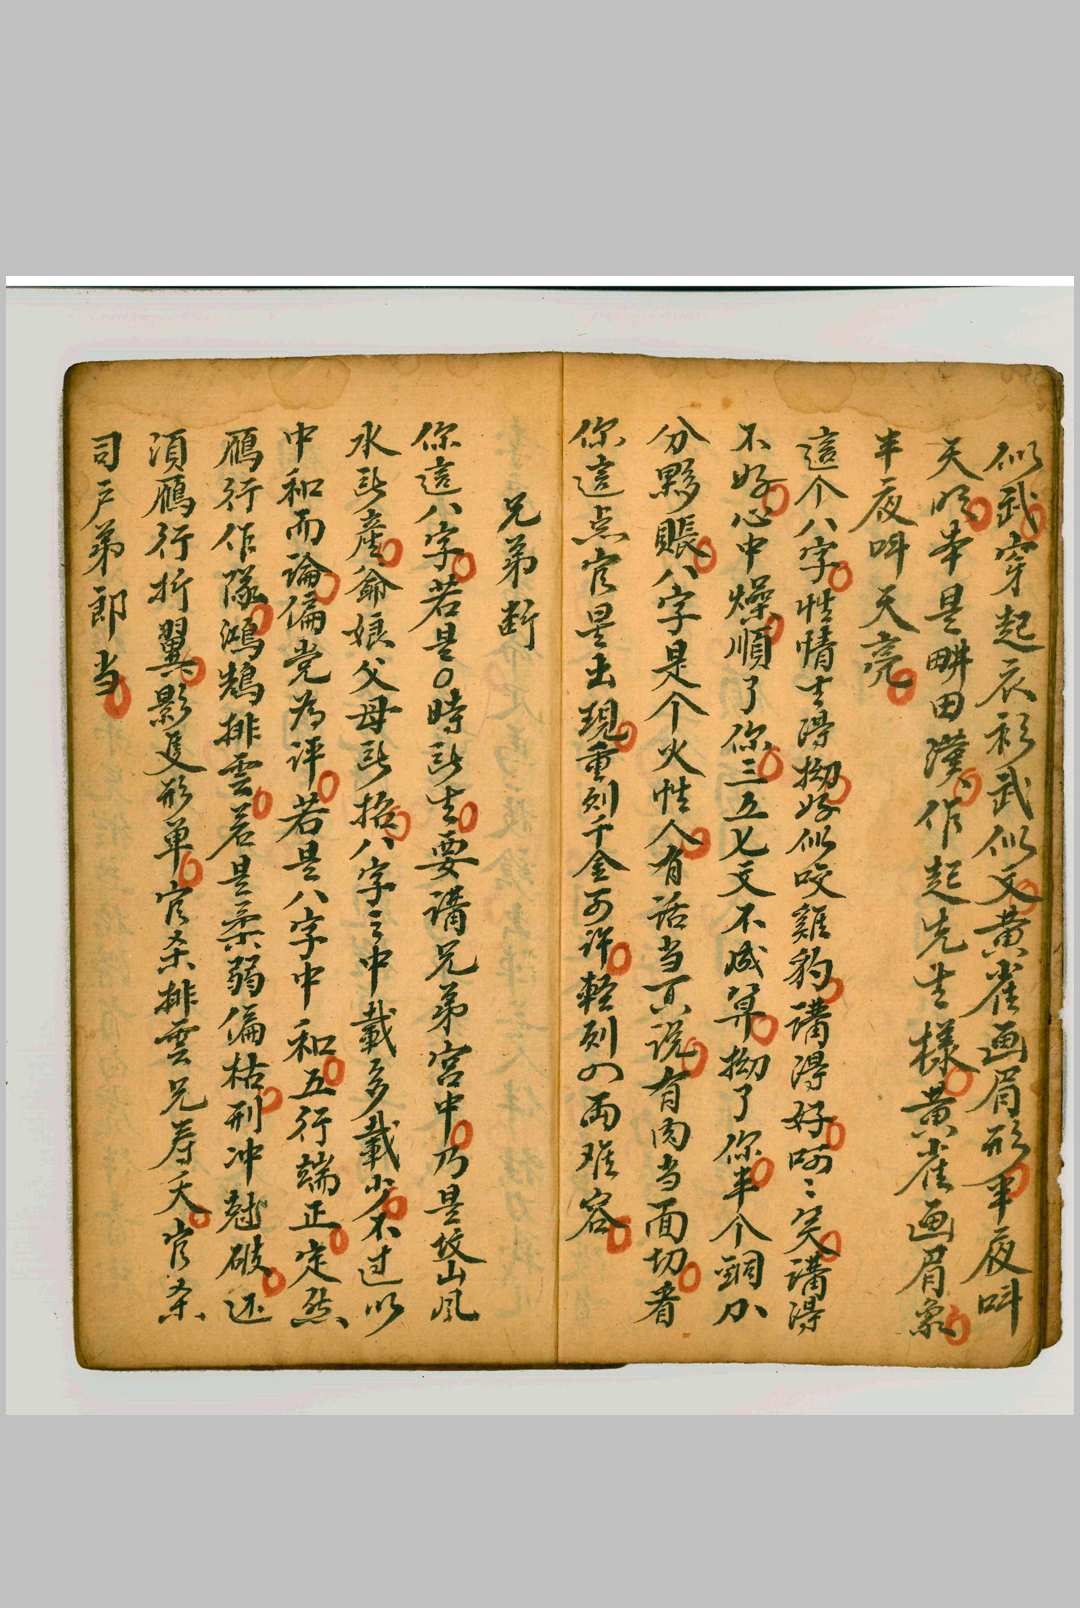 似武穿起衣衫武似文黄雀画眉形半夜呌
天明本是畊田漢作起先生樣黄雀画眉象
半夜呌天亮
這个八字性情生得拗好似咬雞豹講得好呵〻笑講得
不好心中燥順了你三五七文不減算拗了你半个銅力
分夥賬八字是个火性人有話当面说有肉当面切看
你這点官星出現重则千金可許輕则四両难容
兄弟断
你這八字若是〇時出生要講兄弟宮中乃是坟山风
水所產爺娘父母所招八字之中載多載少不过以
中和而論偏党为评若是八字中和五行端正定然
鴈行作隊鴻鵠排雲若是柔弱偏枯刑冲尅破还
須鴈行折翼影隻形单官杀排雲兄寿夭官杀
司户弟郎当